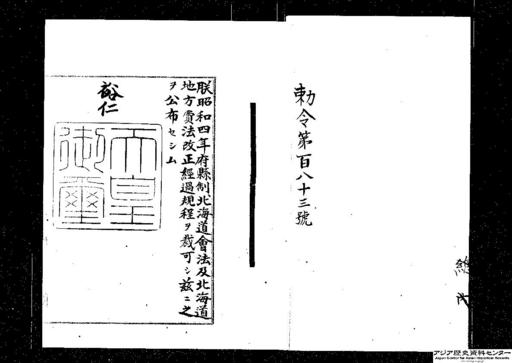 勅令第百八十三號
朕昭和四年府縣制北海道會法及北海道
地方費法改正經過規程ヲ裁可シ茲ニ之
ヲ公布セシム
裕仁
天皇
御璽
アジア歴史資料センター
Japan Center for Asian Historical Records